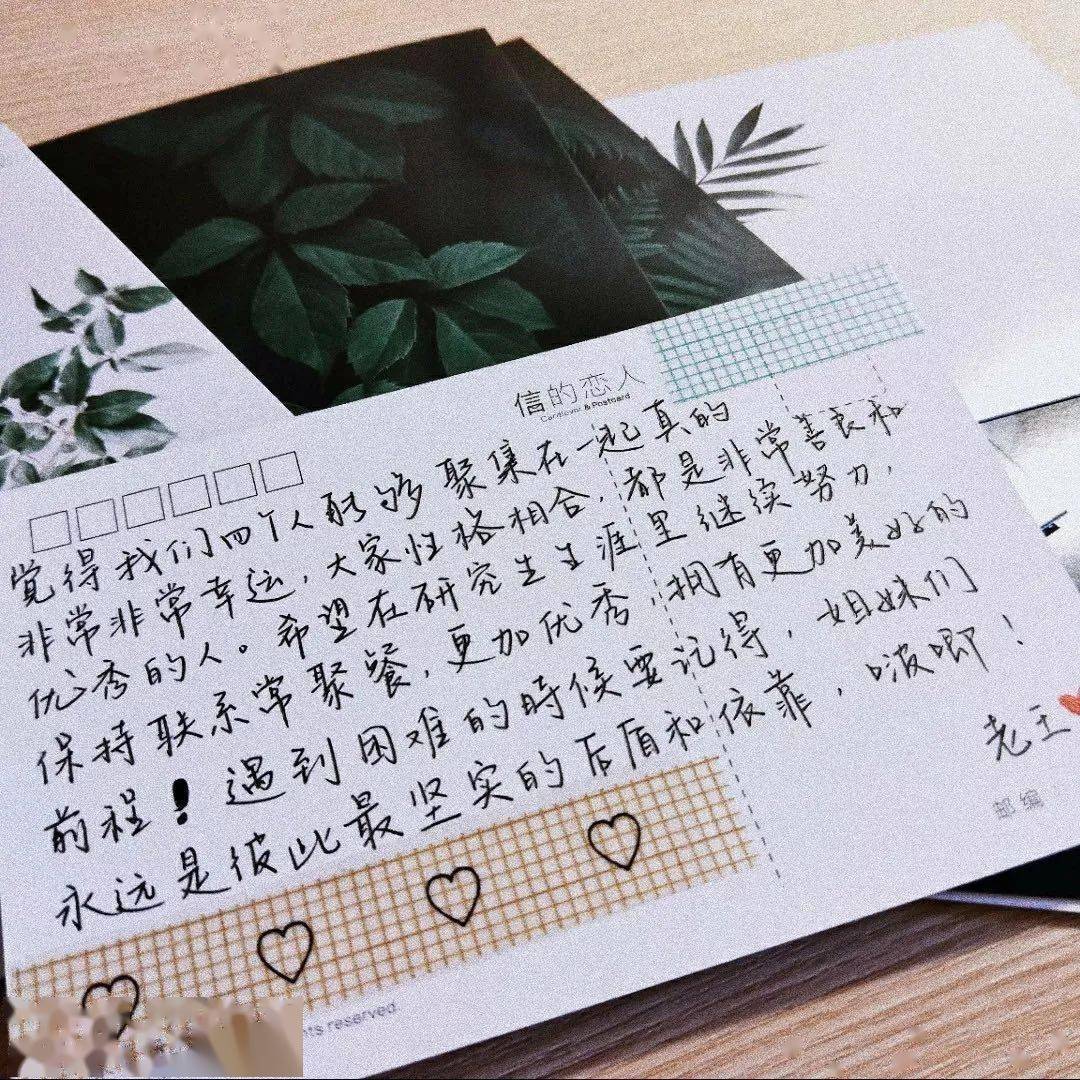 信的恋人
Cardlover & Postcard
觉得我们四个人能够聚集在一起真的
非常非常幸运，大家性格相合，都是非常善良和
优秀的人。希望在研究生生涯里继续努力，
保持联系常聚餐，更加优秀，拥有更加美好的
前程！遇到困难的時候要记得，姐妹们
永远是彼此最坚实的后盾和依靠，啵唧！
老王
邮编
hts reserved